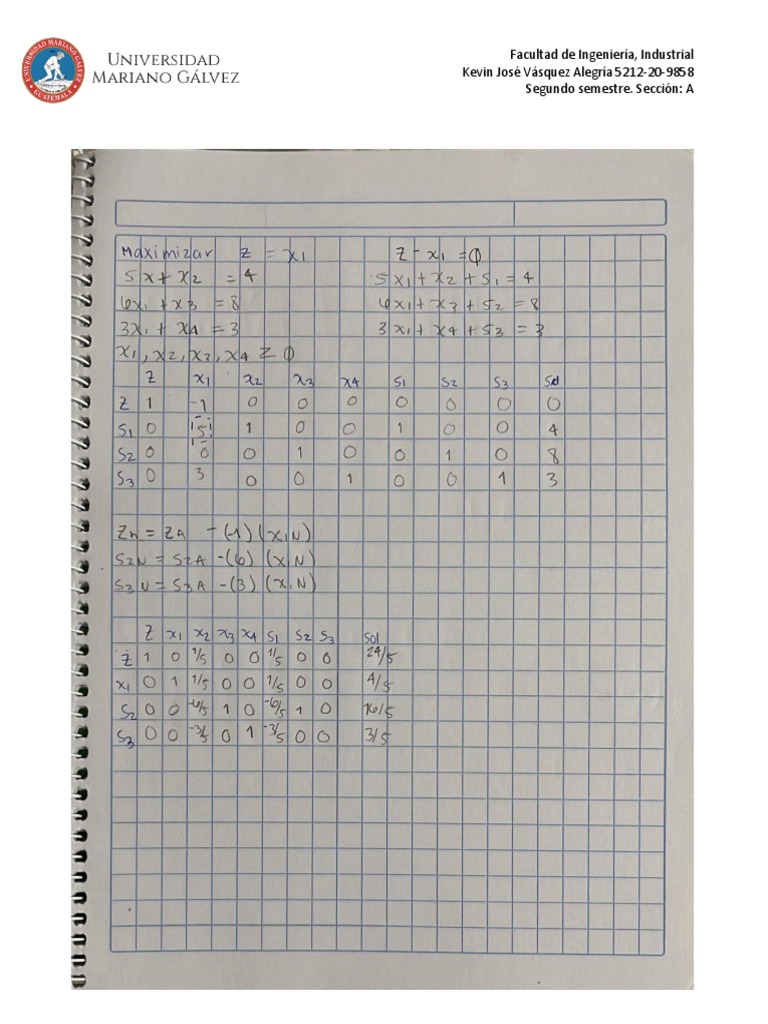 UNIVERSIDAD MARIANO GÁLVEZ
GUATEMALA
UNIVERSIDAD
MARIANO GÁLVEZ
Facultad de Ingeniería, Industrial
Kevin José Vásquez Alegría 5212-20-9858
Segundo semestre. Sección: A
Maximizar z = x1 z - x1 = 0
5x + x2 = 4 5x1 + x2 + s1 = 4
6x1 + x3 = 8 6x1 + x3 + s2 = 8
3x1 + x4 = 3 3x1 + x4 + s3 = 3
x1, x2, x3, x4 ≥ 0
z x1 x2 x3 x4 s1 s2 s3 Sol
z 1 -1 0 0 0 0 0 0 0
s1 0 5 1 0 0 1 0 0 4
s2 0 0 0 1 0 0 1 0 8
s3 0 3 0 0 1 0 0 1 3
Zn = ZA -(-1)(x1N)
s2N = s2A -(6)(x1N)
s3N = s3A -(3)(x1N)
z x1 x2 x3 x4 s1 s2 s3 sol
z 1 0 1/5 0 0 1/5 0 0 24/5
x1 0 1 1/5 0 0 1/5 0 0 4/5
s2 0 0 -6/5 1 0 -6/5 1 0 16/5
s3 0 0 -3/5 0 1 -3/5 0 0 3/5